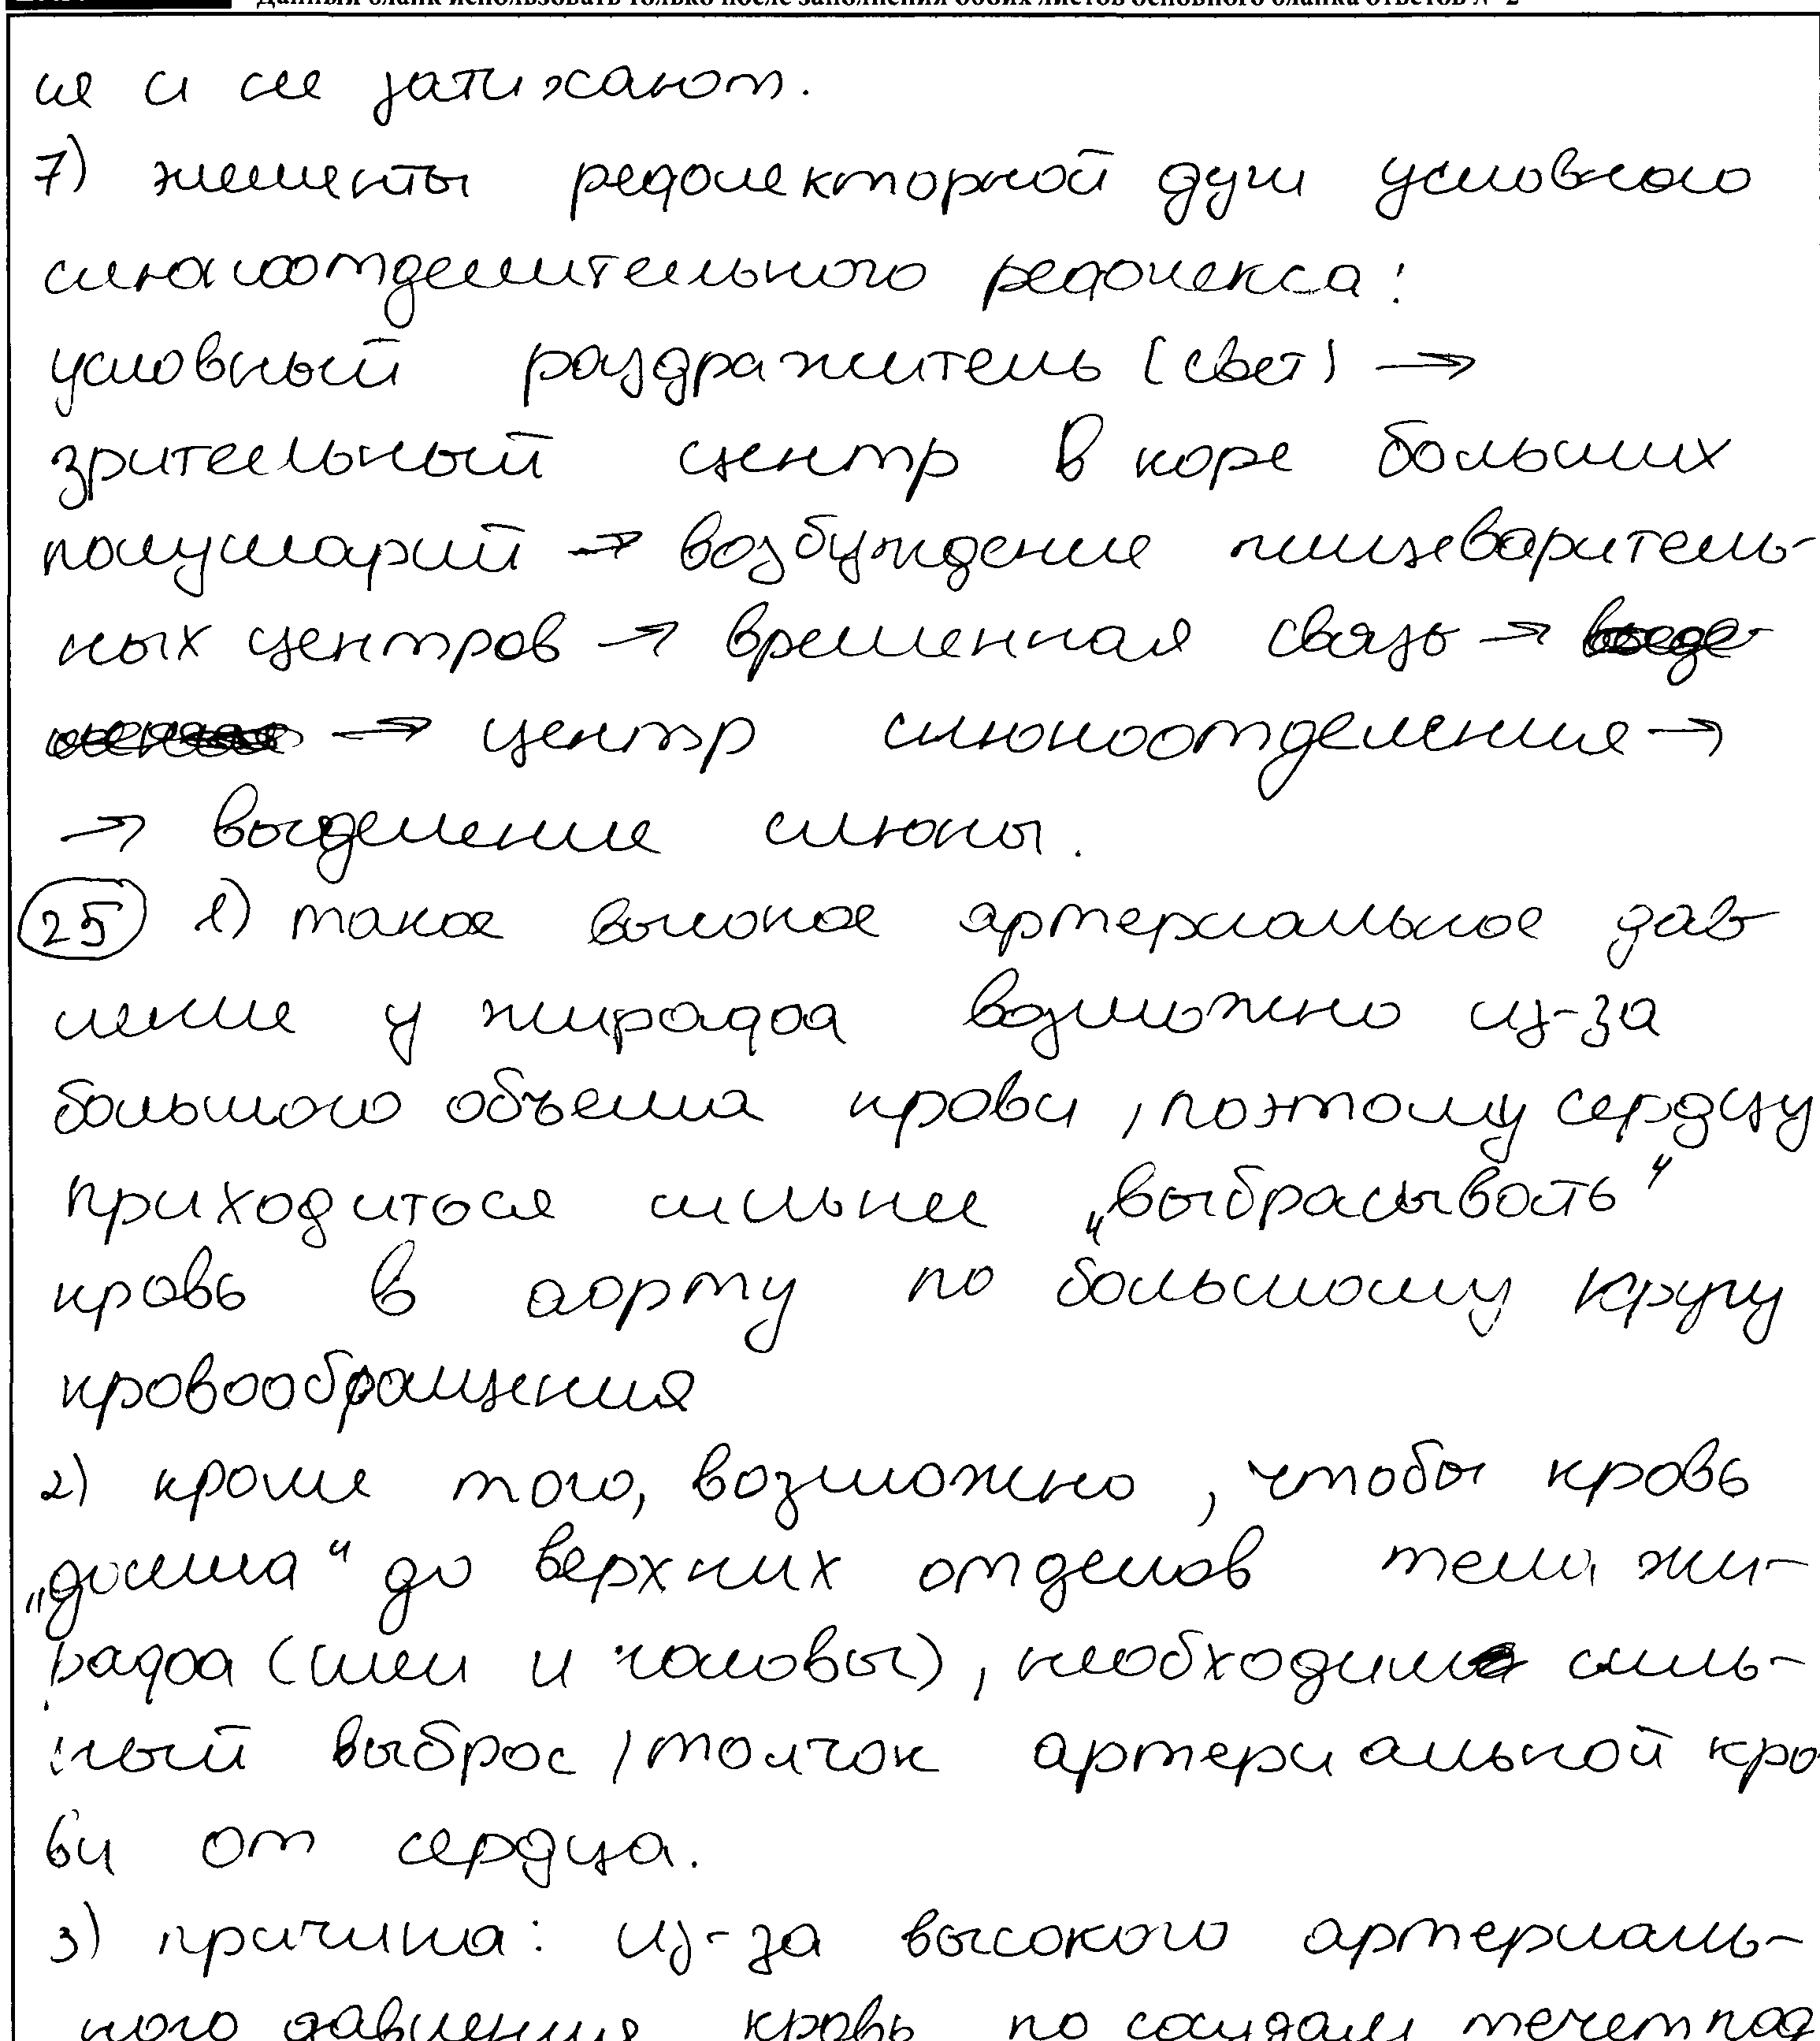 Данный бланк использовать только после заполнения обоих листов основного бланка ответов № 2
ся и не затихают.
7) элементы рефлекторной дуги условного
слюноотделительного рефлекса:
условный раздражитель (свет) →
зрительный центр в коре больших
полушарий → возбуждение пищеваритель-
ных центров → временная связь →
→ центр слюноотделения →
→ выделение слюны.
25 1) такое высокое артериальное дав
ление у жирафа возможно из-за
большого объема крови, поэтому сердцу
приходиться сильнее „выбрасывать“
кровь в аорту по большому кругу
кровообращения
2) кроме того, возможно, чтобы кровь
„дошла“ до верхних отделов тела жи-
рафа (шеи и головы), необходим силь-
ный выброс/толчок артериальной кро
ви от сердца.
3) причина: из-за высокого артериаль-
ного давления кровь по сосудам течет под